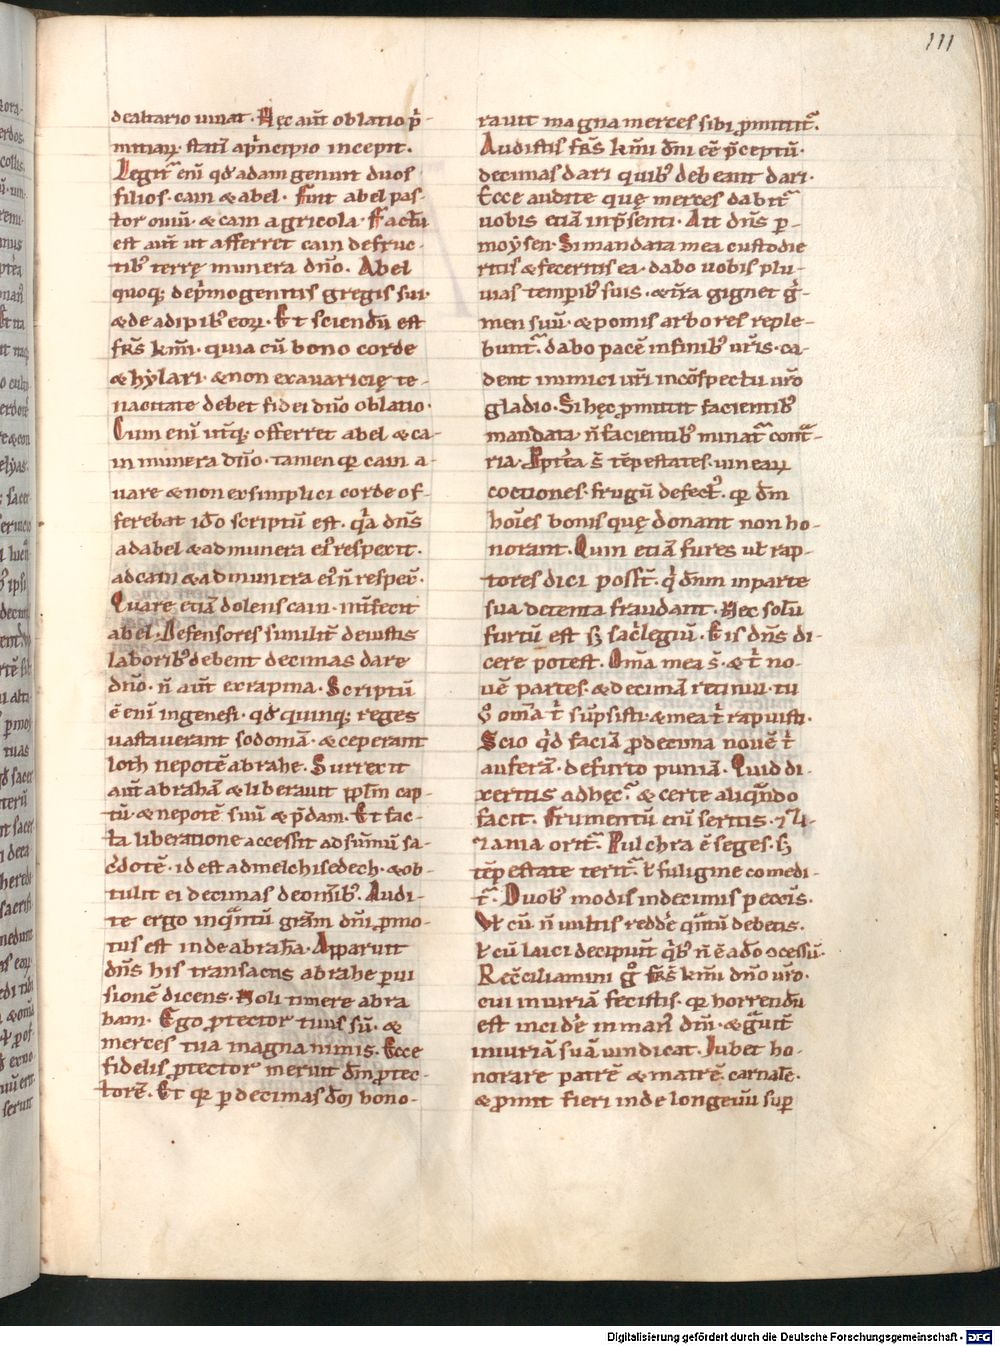 111
de altario uiuat. Hęc aūt oblatio pͥ-
mitiaꝝ statī apͥncipio incepit.
Legitᷓ enī qđ adam genuit duos
filios. cain & abel. Fuit abel pas-
tor ouiū. & cain agricola. Factū
est aūt ut afferret cain de fruc-
tibꝰ terrę munera dño. Abel
quoq; de pͥmogenitis gregis sui.
& de adipibꝰ eoꝝ. Et sciendū est
frēs kmī. quia cū bono corde
& hylari. & non ex auaricię te-
nacitate debet fidei dño oblatio.
Cum enī utq; offerret abel & ca-
in munera dño. tamen qꝛ cain a-
uare & non ex simplici corde of-
ferebat ido scriptū est. qͥa dñs
ad abel & ad munera eiꝰ respexit.
ad cain & ad munera eiꝰ ñ respex̄.
Quare etiā dolens cain. int̄fecit
abel. Defensores similit̄ de iustis
laboribꝰ debent decimas dare
dño. ñ aūt ex rapina. Scriptū
ē enī in genesi. qđ quinq; reges
uastauerant sodomā. & ceperant
loth nepotē abrahe. Surrexit
aūt abrahā & liberauit pplm cap-
tū. & nepotē suū & p̄dam. Et fac-
ta liberatione accessit ad sūmū sa-
c̄dotē. id est ad melchisedech. & ob-
tulit ei decimas de om̄ibꝰ. Audi-
te ergo inqͣntū grām dñi ꝓmo-
tus est inde abrahā. Apparuit
dñs his transactis abrahe p uisi
sionē dicens. Noli timere abra
ham. Ego protector tuus sū. &
merces tua magna nimis. Ecce
fidelis ꝓtector meruit dm̄ ꝓtec-
torē. Et qꝛ p decimas dm̄ hono-
rauit magna merces sibi ꝓmittitᷓ.
Audistis frēs kmī dñi eē p̄ceptū.
decimas dari quibꝰ debeant dari.
Ecce audite quę merces dabitᷓ
uobis etiā in p̄senti. Ait dñs p
moysen. Si mandata mea custodie
ritis & feceritis ea. dabo uobis plu-
uias temporibꝰ suis. & tr̄a gignet gͥ-
men suū. & pomis arbores reple-
buntᷓ. dabo pacē in finibꝰ ur̄is. ca-
dent inimici ur̄i in cōspectu ur̄o
gladio. Si hęc ꝓmittit facientibꝰ
mandata ñ facientibꝰ minatᷓ contᷓ-
ria. Ppt̄ea s̄ tēpestates. uineaꝝ
coctiones. frugū defectꝰ. qꝛ dm̄
hoīes bonis quę donant non ho-
norant. Cum etiā fures ut rap-
tores dici possīt. qͥ dñm in parte
sua detenta fraudant. Nec solū
furtū est sꝫ sacͥlegiū. Eis dñs di-
cere potest. Om̄a mea s̄. & t̄ no-
uē partes. & decimā retinui. tu
ꝰ om̄a t̄ sūpsisti. & mea t̄ rapuisti.
Scio qͥd faciā ꝓ decima nouē t̄
auferā. de furto puniā. Quid di-
xeritis ad hęc? & certe aliqͣndo
facit. Frumentū enī seritis. & li-
zania oritᷓ. Pulchra ē seges. sꝫ
tēpestate teritᷓ. ł fuligine comedi-
tᷓ. Duobꝰ modis in decimis peccatis.
Vł cū ñ uultis reddͤe qͣntū debetis.
ł cū laici decipiunt qͥbꝰ ñ ē a dō ꝯcessū.
Recc̄iliamini gͦ frēs kmī dño ur̄o.
cui iniuriā fecistis. qꝛ horrendū
est incidͤe in man dñi. & gͣuit̄
iniuriā suā uindicat. Iubet ho-
norare patrē & matrē carnalē.
& ꝓmit fieri inde longeuū sup
Digitalisierung gefördert durch die Deutsche Forschungsgemeinschaft - DFG